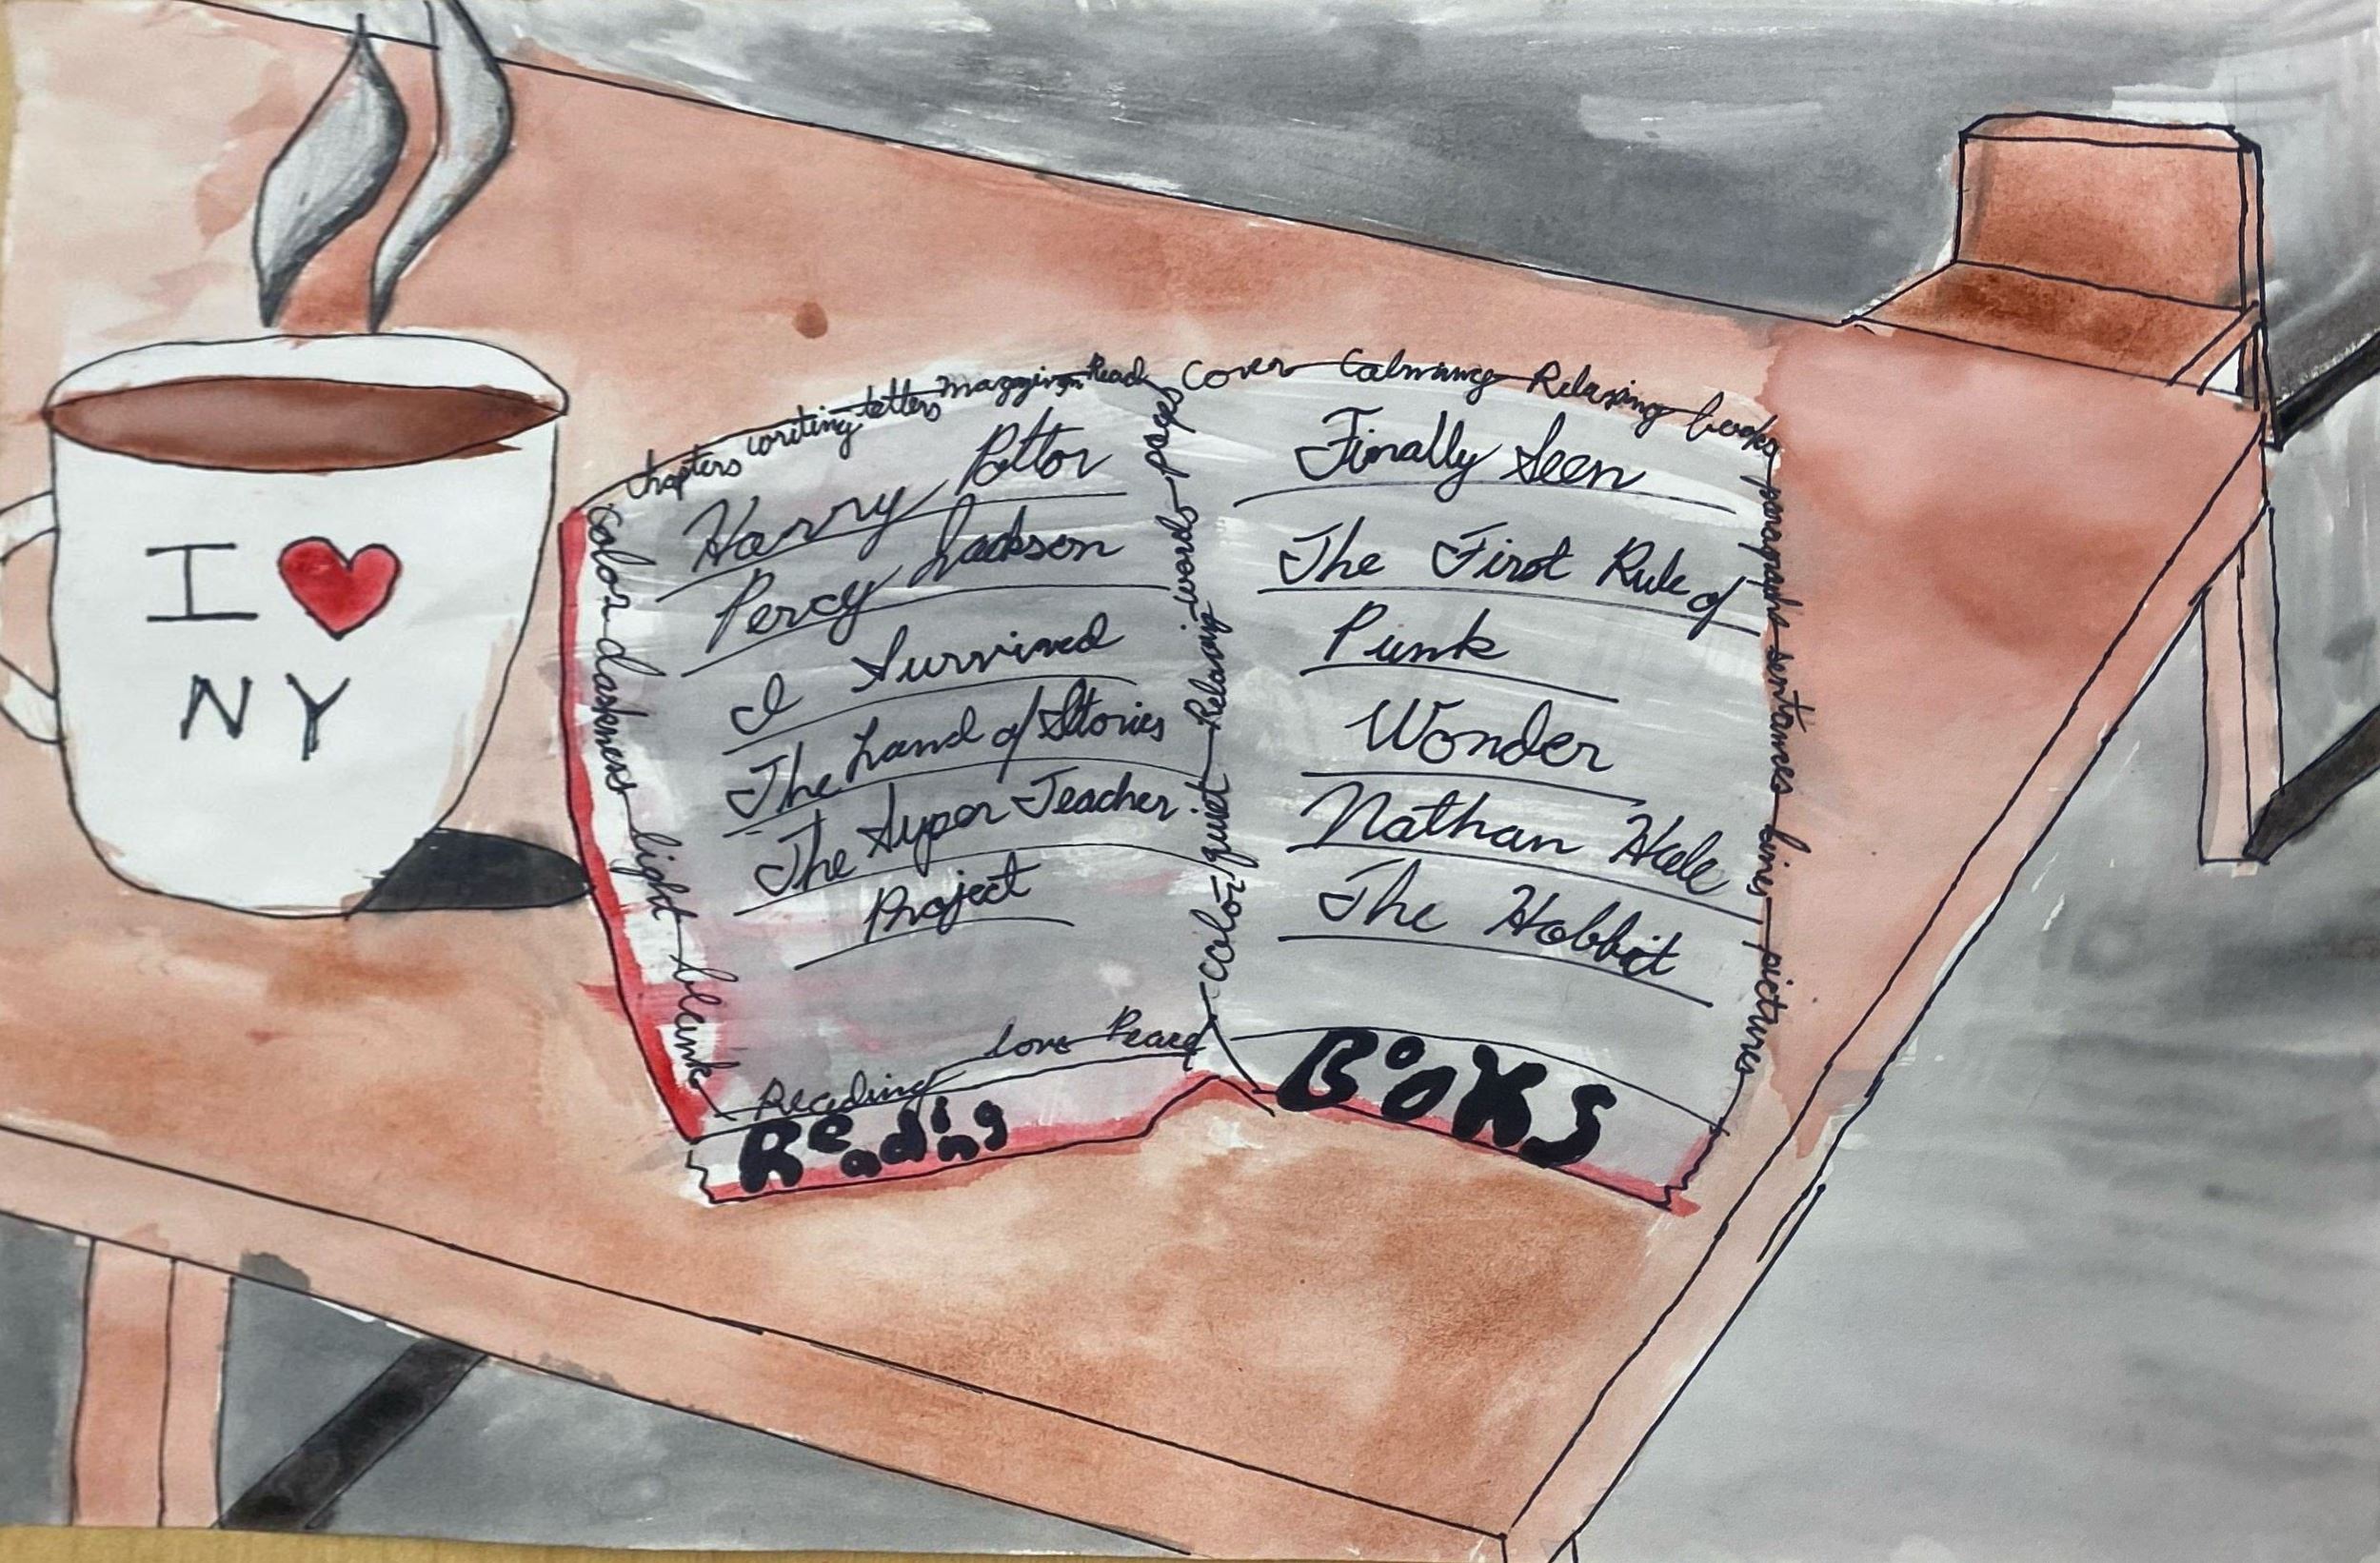 I ♥
NY
chapters writing letters mazgizn Read
Harry Pottor
Percy Jackson
I Survived
The Land of Stories
The Super Teacher
Project
color darkness light blank
Reading love Peace
Reading
pages words Relaxing quiet color
cover Calming Relaxing books
Finally Seen
The First Rule of
Punk
Wonder
Nathan Hale
The Hobbit
paragraphs sentances lines pictures
BOOKS